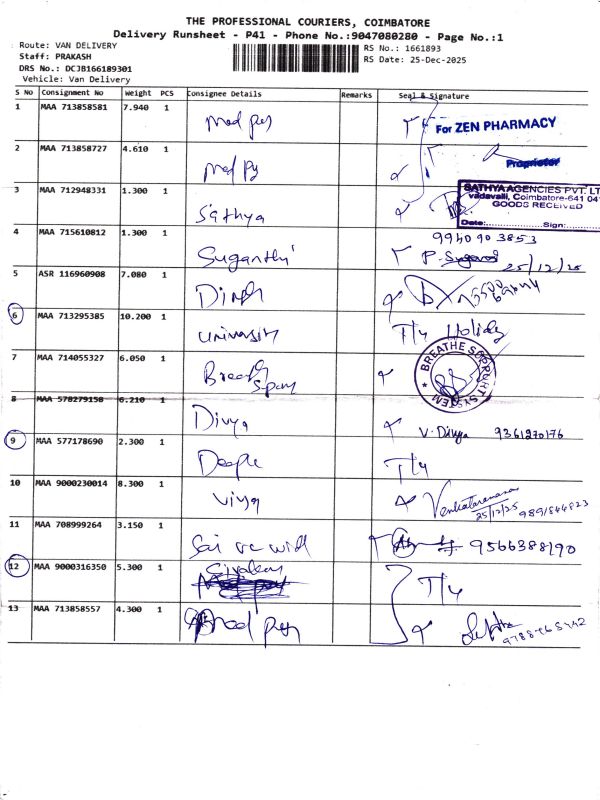 THE PROFESSIONAL COURIERS, COIMBATORE
Delivery Runsheet - P41 - Phone No.:9047080280 - Page No.:1
Route: VAN DELIVERY
RS No.: 1661893
Staff: PRAKASH
RS Date: 25-Dec-2025
DRS No.: DCJB166189301
Vehicle: Van Delivery
S No Consignment No Weight PCS Consignee Details Remarks Seal & Signature
1 MAA 713858581 7.940 1
For ZEN PHARMACY
2 MAA 713858727 4.610 1
Proprietor
3 MAA 712948331 1.300 1 Sathya
SATHYA AGENCIES PVT. LT
Vadavalli, Coimbatore-641 041
GOODS RECEIVED
Date: Sign:
4 MAA 715610812 1.300 1 Suganthi
9940903853
25/12/25
5 ASR 116960908 7.080 1
6 MAA 713295385 10.200 1 University T/y Holiday
7 MAA 714055327 6.050 1
BREATHE SUPPORT SYSTEM
8 MAA 578279158 6.210 1 Divya V. Divya 9361270176
9 MAA 577178690 2.300 1 T/y
10 MAA 9000230014 8.300 1
Venkataramana
25/12/25
11 MAA 708999264 3.150 1 9566388190
12 MAA 9000316350 5.300 1 T/y
13 MAA 713858557 4.300 1